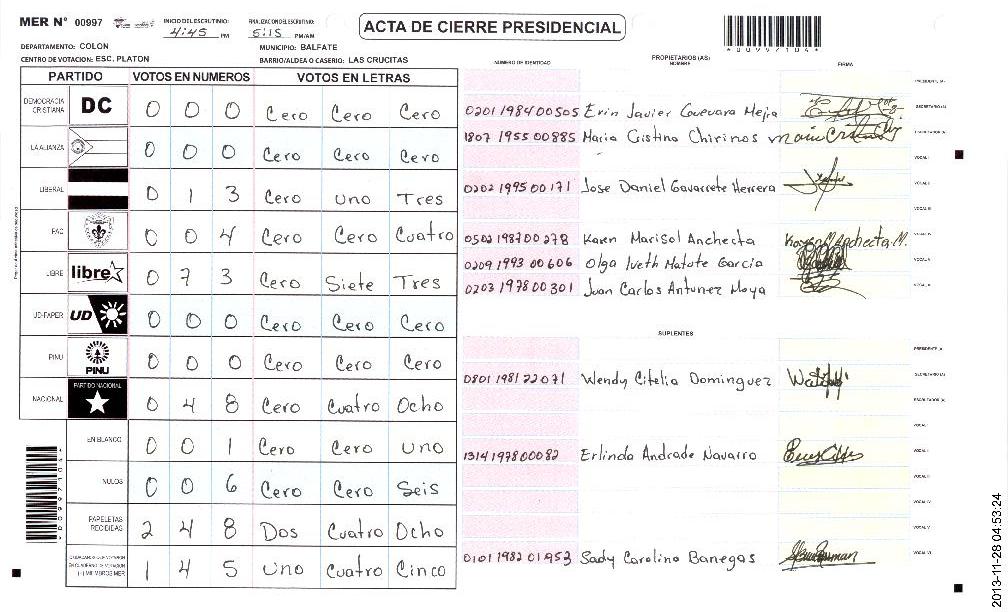 MER N° 00997
INICIO DEL ESCRUTINIO: 4:45 PM
FINALIZACION DEL ESCRUTINIO: 5:15 PM/AM
ACTA DE CIERRE PRESIDENCIAL
*00997104*
DEPARTAMENTO: COLON
MUNICIPIO: BALFATE
CENTRO DE VOTACION: ESC. PLATON
BARRIO/ALDEA O CASERIO: LAS CRUCITAS
PARTIDO VOTOS EN NUMEROS VOTOS EN LETRAS
DEMOCRACIA CRISTIANA DC 0 0 0 Cero Cero Cero
LA ALIANZA 0 0 0 Cero Cero Cero
LIBERAL 0 1 3 Cero uno Tres
PAC 0 0 4 Cero Cero Cuatro
LIBRE libre 0 7 3 Cero Siete Tres
UD-FAPER UD 0 0 0 Cero Cero Cero
PINU PINU 0 0 0 Cero Cero Cero
NACIONAL PARTIDO NACIONAL 0 4 8 Cero Cuatro Ocho
EN BLANCO 0 0 1 Cero Cero uno
NULOS 0 0 6 Cero Cero Seis
PAPELETAS RECIBIDAS 2 4 8 Dos Cuatro Ocho
CIUDADANOS QUE VOTARON EN CUADERNO DE VOTACION (+) MIEMBROS MER 1 4 5 uno Cuatro Cinco
NUMERO DE IDENTIDAD PROPIETARIOS (AS) NOMBRE FIRMA
PRESIDENTE (A)
0201 1984 00505 Erin Javier Guevara Mejia SECRETARIO (A)
1807 1955 00885 Maria Cristina Chirinos ESCRUTADOR (A)
VOCAL I
0202 1995 00171 Jose Daniel Gavarrete Herrera VOCAL II
VOCAL III
0502 1987 00278 Karen Marisol Anchecta Karen M Anchecta. M. VOCAL IV
0209 1993 00606 Olga Iveth Matute Garcia VOCAL V
0203 1978 00301 Juan Carlos Antunez Moya VOCAL VI
SUPLENTES
PRESIDENTE (A)
0801 1981 22071 Wendy Citelia Dominguez SECRETARIO (A)
ESCRUTADOR (A)
VOCAL I
1314 1978 00082 Erlinda Andrade Navarro VOCAL II
VOCAL III
VOCAL IV
VOCAL V
0101 1982 01953 Sady Carolina Banegas VOCAL VI
*00997104*
2013-11-28 04:53:24